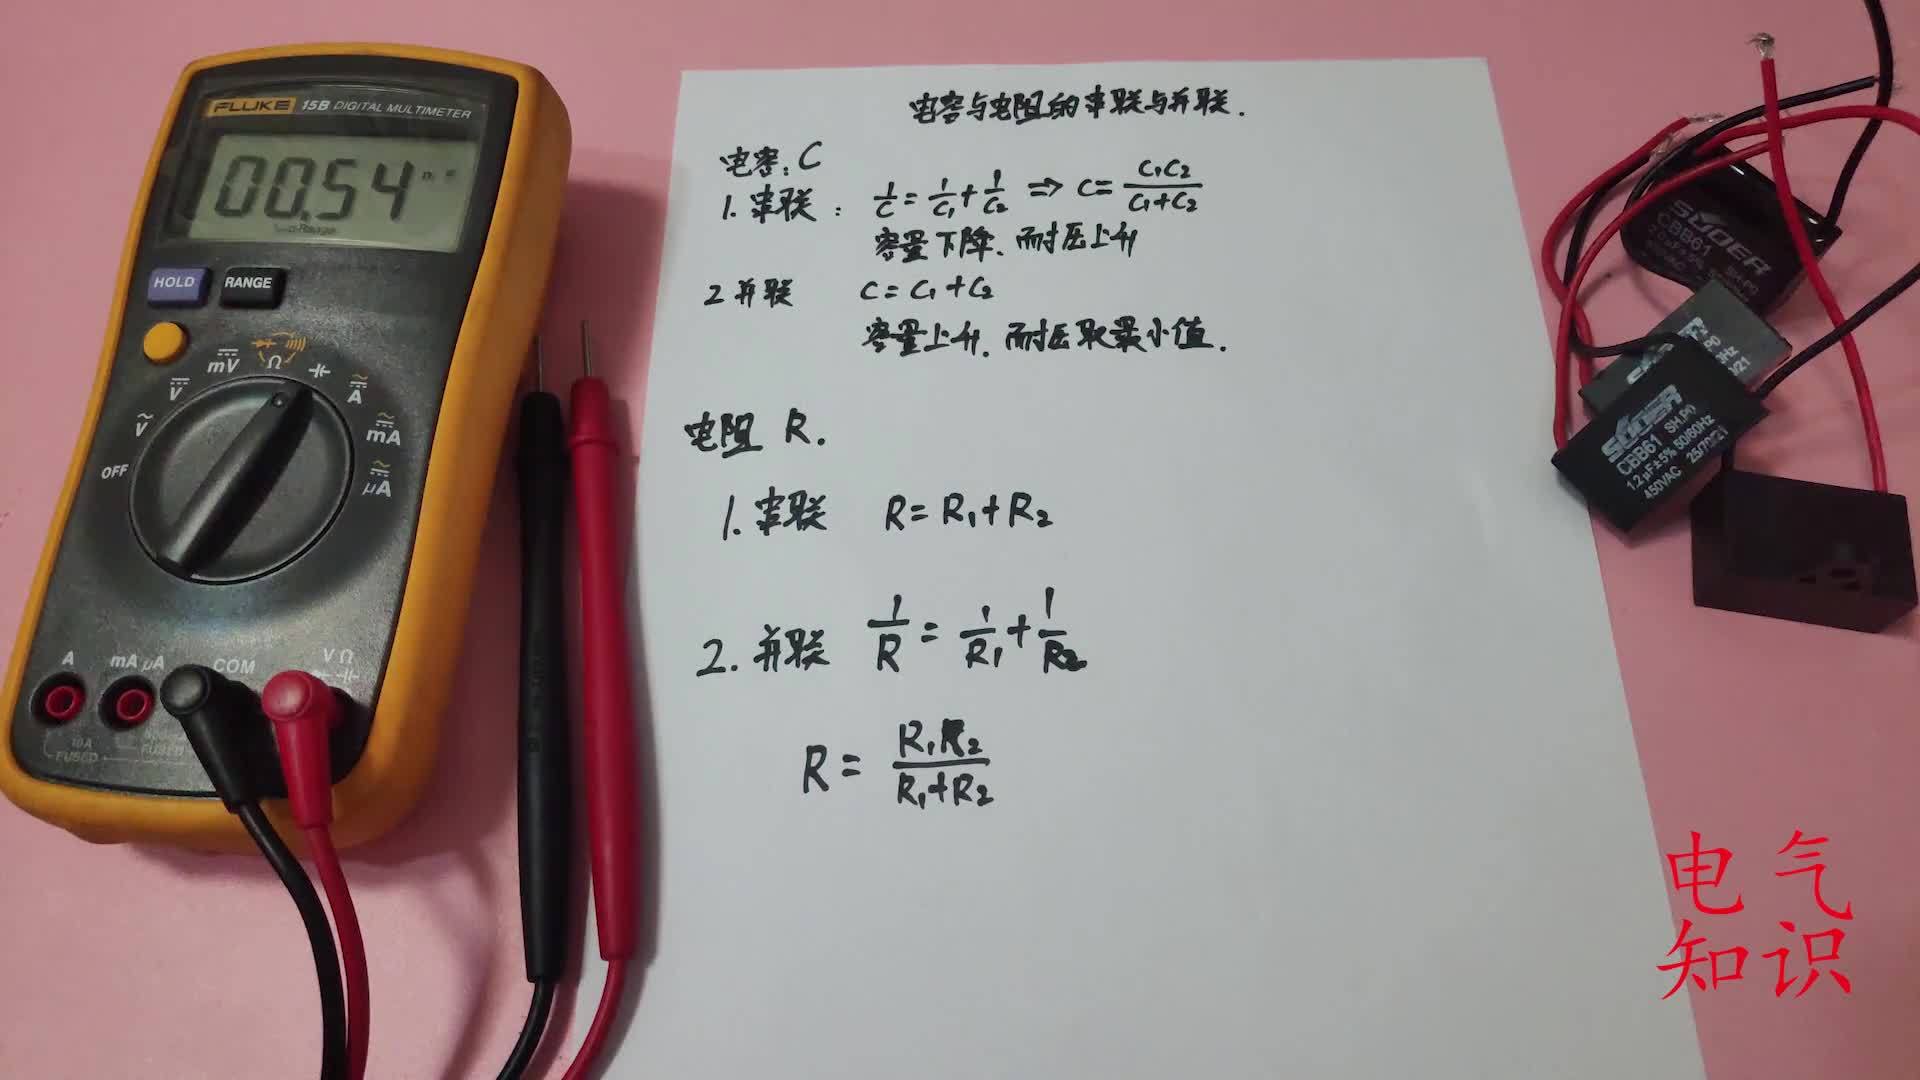 FLUKE 15B DIGITAL MULTIMETER
00.54
HOLD
RANGE
mV
Ω
V
A
V
mA
OFF
μA
A
mA μA
COM
VΩ
10A
FUSED
FUSED
电容与电阻的串联与并联.
电容:C
1. 串联: 1/C = 1/C₁ + 1/C₂ ⇒ C = C₁C₂/C₁+C₂
容量下降.耐压上升
2 并联 C = C₁ + C₂
容量上升.耐压取最小值.
电阻 R.
1. 串联 R = R₁ + R₂
2. 并联 1/R = 1/R₁ + 1/R₂
R = R₁R₂/R₁+R₂
SÜOER
CBB61
SÜOER
CBB61 SH.P0
1.2μF±5% 50/60Hz
450VAC 25/70/21
电气
知识